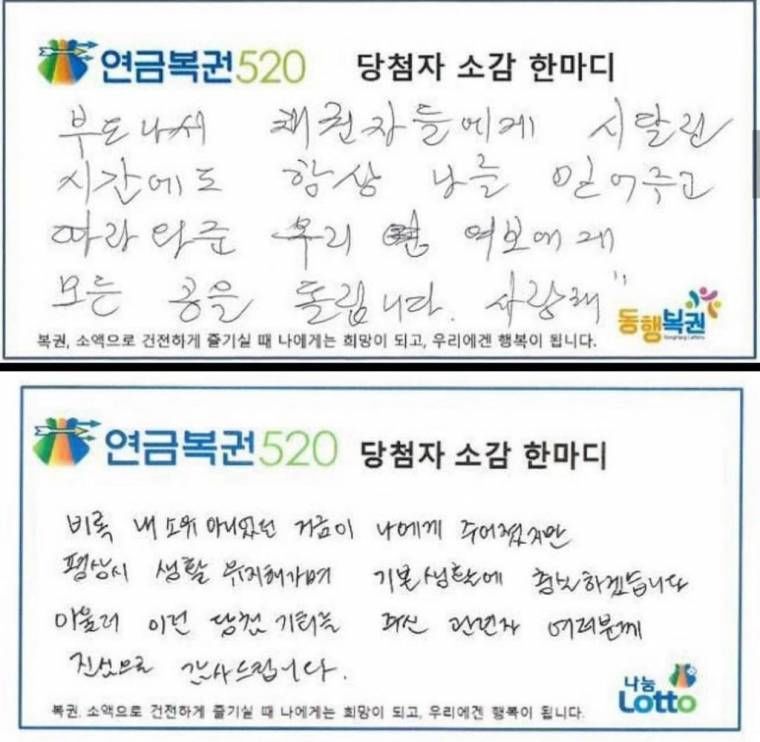 연금복권520 당첨자 소감 한마디
부도나서 채권자들에게 시달린
시간에도 항상 나를 믿어주고
따라와준 우리 여보에게
모든 공을 돌립니다. 사랑해"
동행복권
복권, 소액으로 건전하게 즐기실 때 나에게는 희망이 되고, 우리에겐 행복이 됩니다.
연금복권520 당첨자 소감 한마디
비록 내 소유 아니었던 거금이 나에게 주어졌지만
평상시 생활 유지해가며 기본생활에 충실하겠습니다
아울러 이런 당첨 기회를 주신 관련자 여러분께
진심으로 감사드립니다.
나눔
Lotto
복권, 소액으로 건전하게 즐기실 때 나에게는 희망이 되고, 우리에겐 행복이 됩니다.